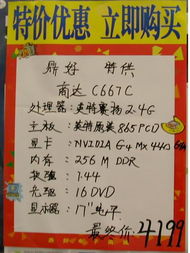 特价优惠 立即购买
鼎好 特供
商达 C667C
处理器：英特赛扬2.4G
主板：英特原装865PCD
显卡：NVIDIA G4 MX 440
内存：256M DDR
软驱：1.44
光驱：16DVD
显示器：17"纯平
最终价：4199